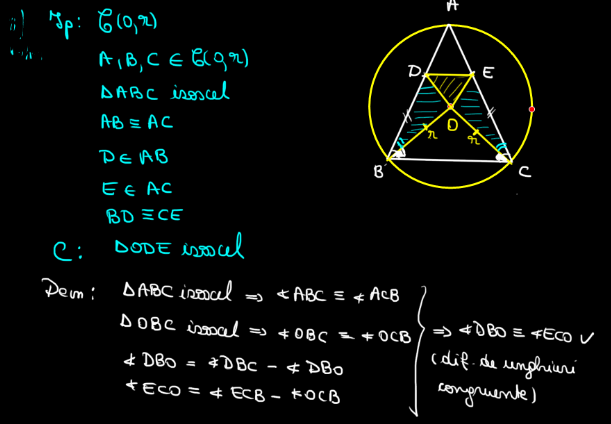 Ip: C(O,r)
A, B, C ∈ C(O,r)
ΔABC isoscel
AB ≡ AC
D ∈ AB
E ∈ AC
BD ≡ CE
C: ΔODE isoscel
Dem: ΔABC isoscel ⇒ ∢ABC ≡ ∢ACB
ΔOBC isoscel ⇒ ∢OBC ≡ ∢OCB
∢DBO = ∢DBC - ∢DBO
∢ECO = ∢ECB - ∢OCB
⇒ ∢DBO ≡ ∢ECO ✓
(dif. de unghiuri
congruente)
A
D E
O
r r
B C